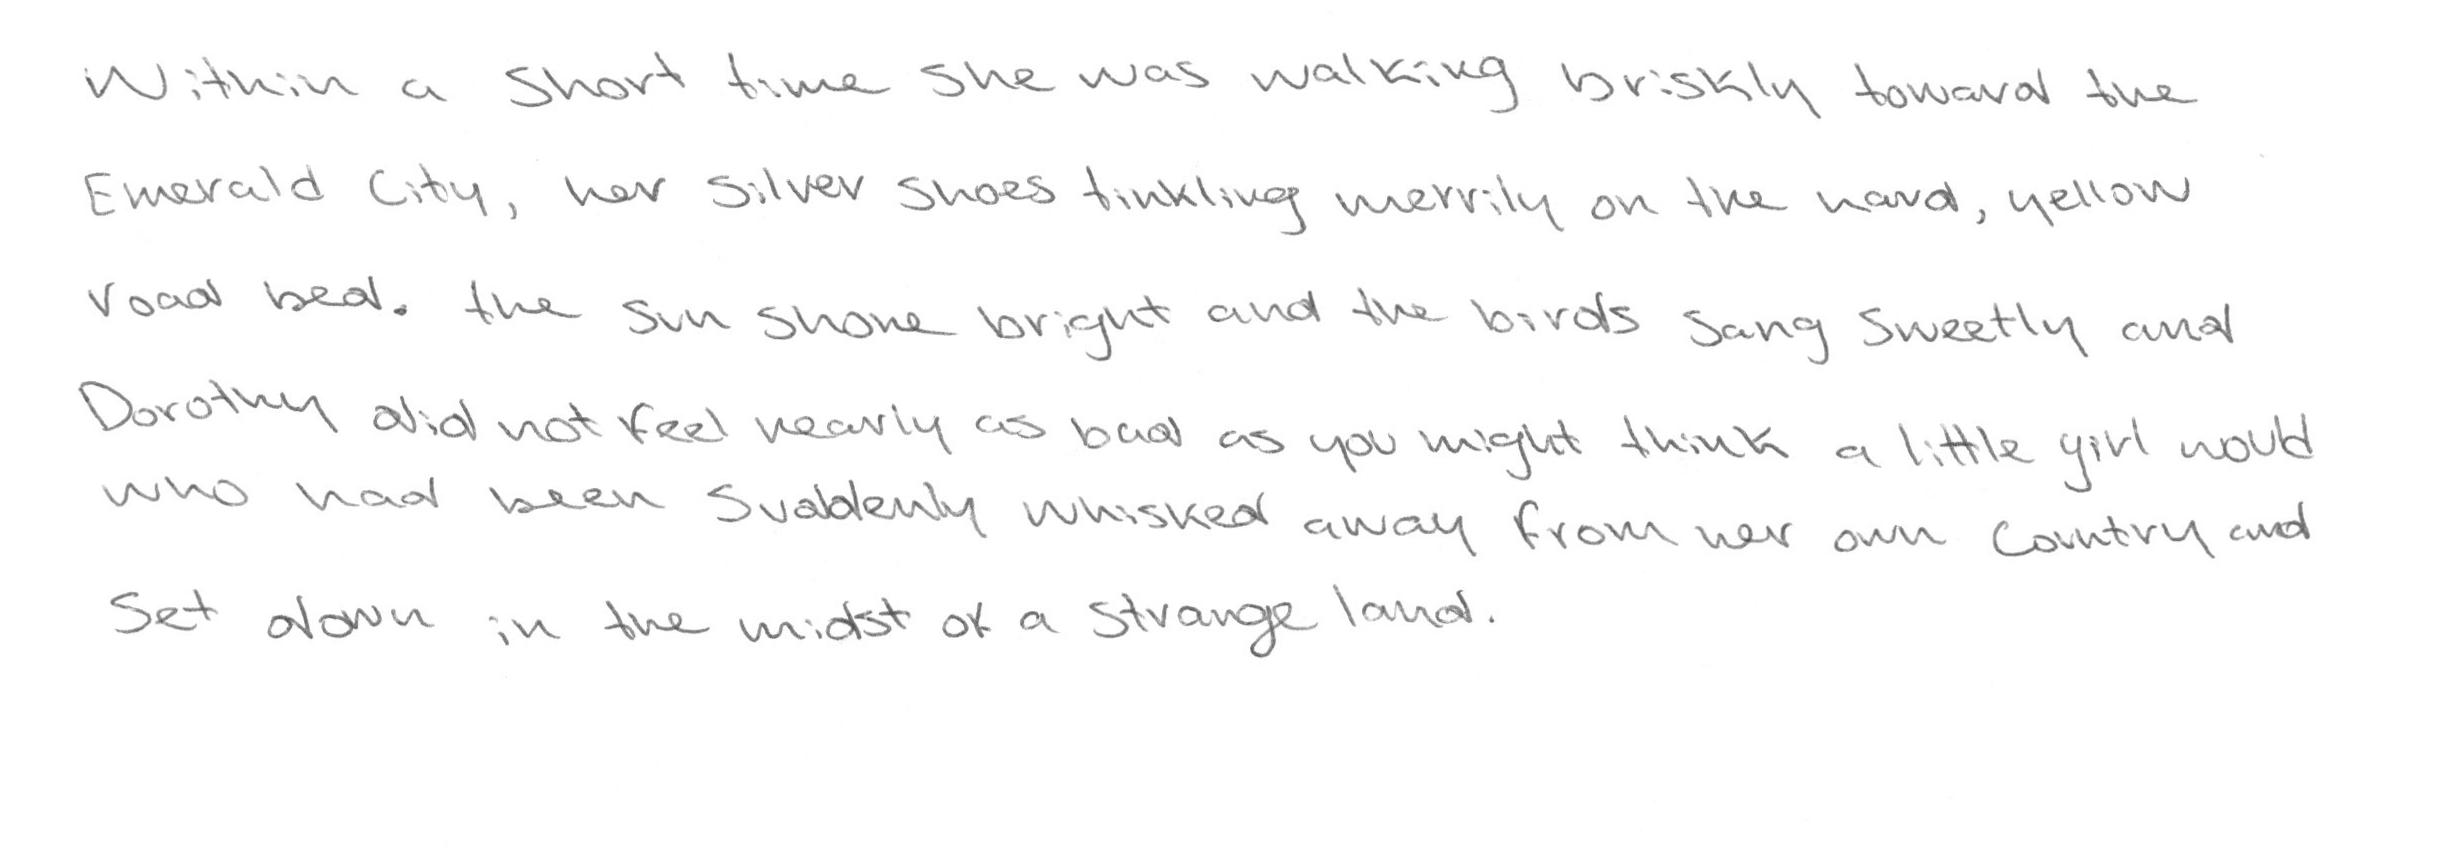 Within a short time she was walking briskly toward the
Emerald City, her silver shoes tinkling merrily on the hard, yellow
road bed. the sun shone bright and the birds sang sweetly and
Dorothy did not feel nearly as bad as you might think a little girl would
who had been suddenly whisked away from her own country and
set down in the midst of a strange land.